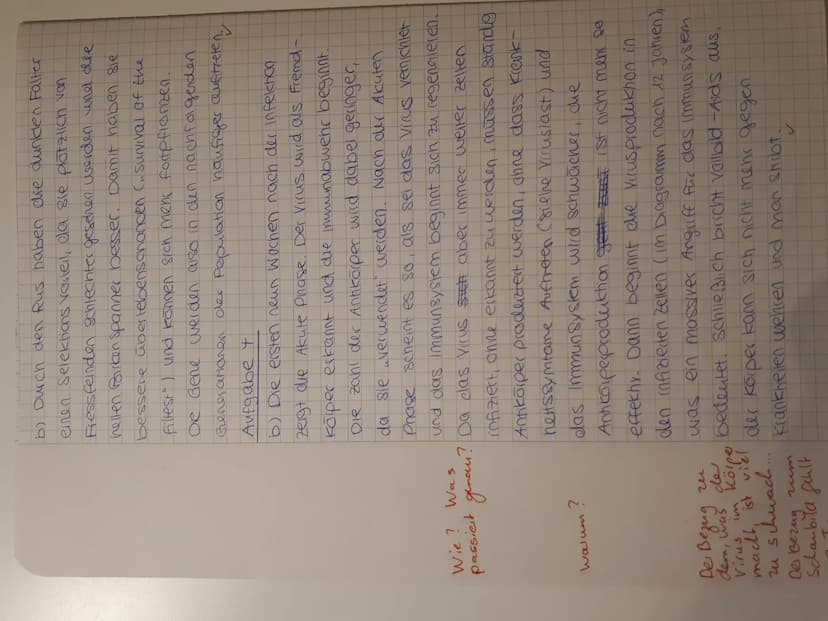 b) Durch den Rus haben die dunklen Falter
einen Selektionsvorteil, da sie plötzlich von
Fressfeinden schlechter gesehen werden und die
hellen Birkenspanner besser. Damit haben sie
bessere Überlebenschancen („survival of the
fittest") und können sich mehr fortpflanzen.
Die Gene werden also in den nachfolgenden
Generationen der Population häufiger auftreten. ✓
Aufgabe 4
b) Die ersten neun Wochen nach der Infektion
zeigt die Akute Phase. Der Virus wird als Fremd-
körper erkannt und die Immunabwehr beginnt
Die Zahl der Antikörper wird dabei geringer,
da sie „verwendet" werden. Nach der Akuten
Phase scheint es so, als sei das Virus vernichtet
und das Immunsystem beginnt sich zu regenerieren.
Da das Virus aber immer weiter Zellen
infiziert, ohne erkannt zu werden, müssen ständig
Antikörper produziert werden, ohne dass Krank-
heitssymtome Auftreten (siehe Viruslast) und
das Immunsystem wird schwächer, die
Antikörperproduktion ist nicht mehr so
effektiv. Dann beginnt die Virusproduktion in
den infizierten Zellen (im Diagramm nach 12 Jahren),
was ein massiver Angriff für das Immunsystem
bedeutet. Schließlich bricht Vollbild-Aids aus,
der Körper kann sich nicht mehr gegen
Krankheiten wehren und man stirbt. ✓
Wie? Was
passiert genau?
warum?
Der Bezug zu
dem, was der
Virus im Körper
macht, ist viel
zu schwach...
Der Bezug zum
Schaubild fehlt